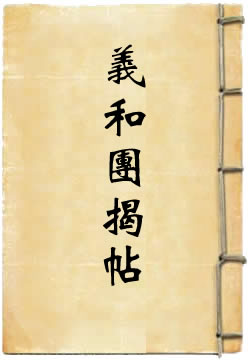 義和團揭帖